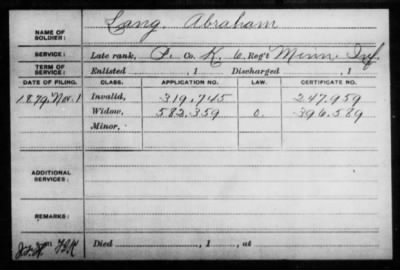 NAME OF SOLDIER: Lang Abraham
SERVICE: Late rank, P. Co. K, 6 Reg't Minn Inf.
TERM OF SERVICE: Enlisted , 1 Discharged , 1
DATE OF FILING. CLASS. APPLICATION NO. LAW. CERTIFICATE NO.
1879, Nov. 1 Invalid, 319,745 247,959
Widow, 582,359 O. 396,589
Minor,
ADDITIONAL SERVICES:
REMARKS:
Died , 1 , at